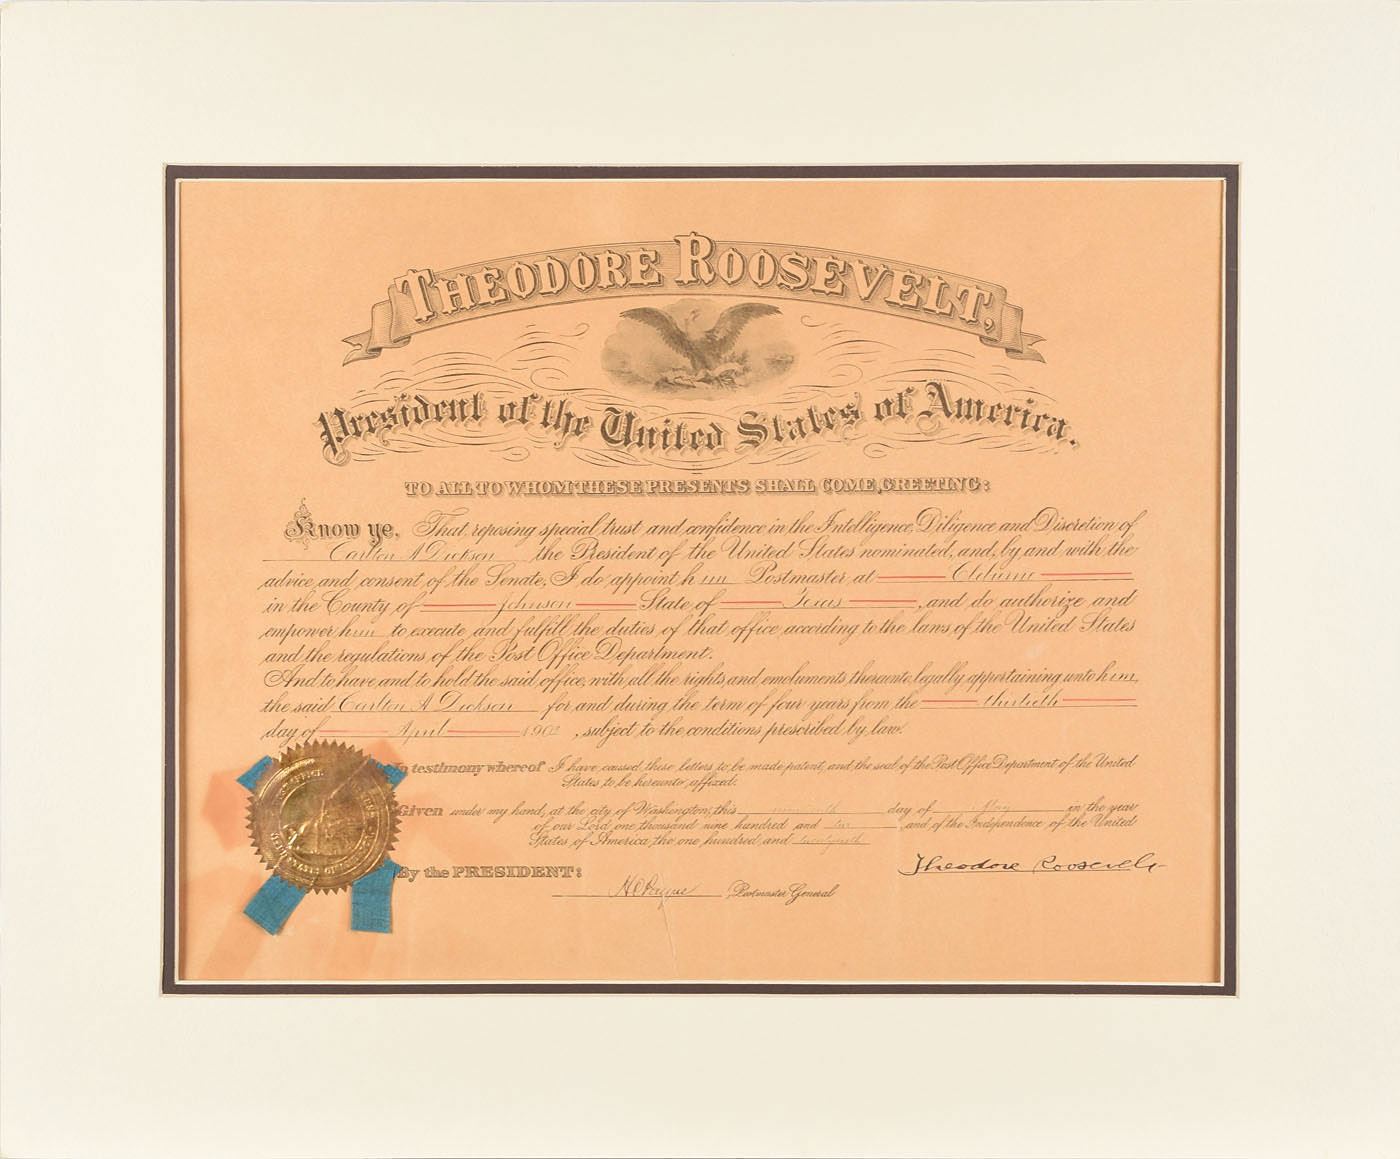 THEODORE ROOSEVELT,
President of the United States of America.
TO ALL TO WHOM THESE PRESENTS SHALL COME, GREETING:
Know ye, That reposing special trust and confidence in the Intelligence, Diligence and Discretion of
Carlton A Dickson the President of the United States nominated, and, by and with the
advice and consent of the Senate, I do appoint him Postmaster at Cleburne
in the County of Johnson State of Texas, and do authorize and
empower him to execute and fulfill the duties of that office according to the laws of the United States
and the regulations of the Post Office Department.
And to have and to hold the said office, with all the rights and emoluments thereunto legally appertaining unto him,
the said Carlton A Dickson for and during the term of four years from the thirtieth
day of April 1902, subject to the conditions prescribed by law.
In testimony whereof I have caused these letters to be made patent, and the seal of the Post Office Department of the United
States to be hereunto affixed.
Given under my hand, at the city of Washington, this day of May in the year
of our Lord one thousand nine hundred and two, and of the Independence of the United
States of America the one hundred and
Theodore Roosevelt
By the PRESIDENT:
H C Payne, Postmaster General